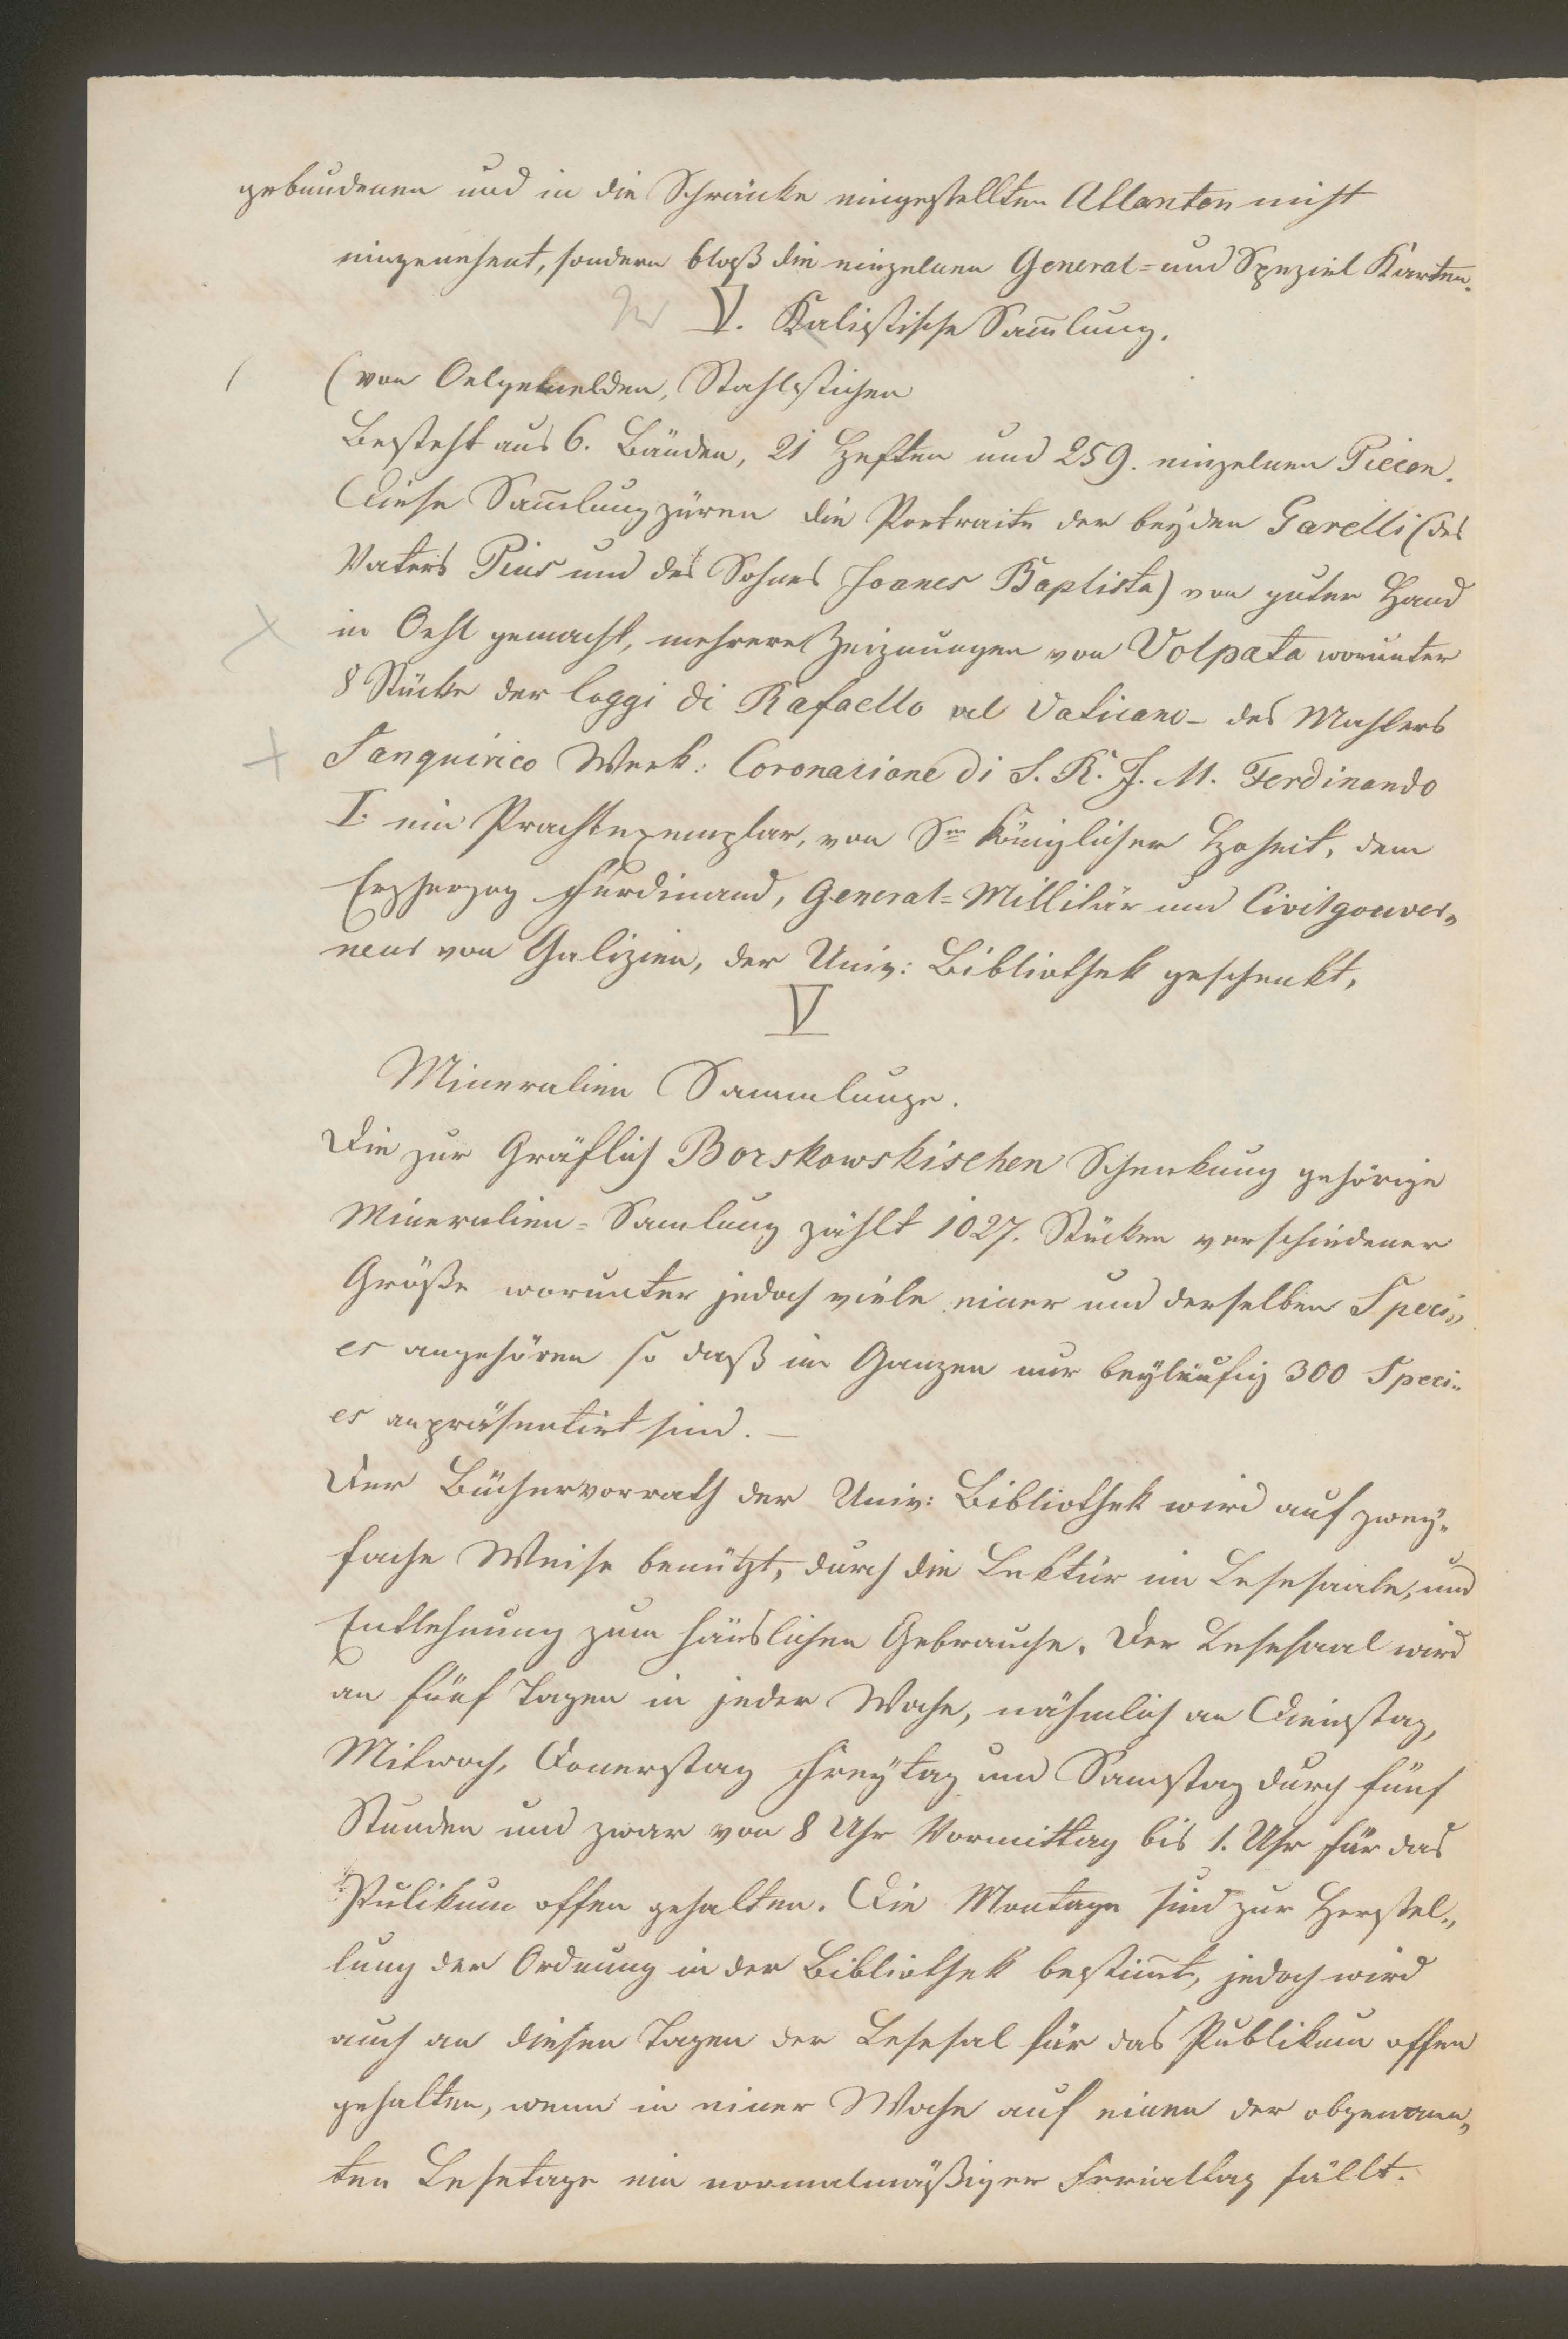 gebundenen und in die Schränke eingestellten Atlanten nicht
eingerechent, sondern bloß die einzelnen General= und Speziel Karten.
V. Kalistische Sam̅lung.
(von Oelgemelden, Stahlstichen
Besteht aus 6. Bänden, 21 Heften und 259. einzelnen Piecen.
Diese Sam̅lung züren die Portraite der beyden Garelli (des
Vaters Pius und des Sohnes Joanes Baptista) von guter Hand
in Oehl gemacht, mehrere Zeiznungen von Volpata worunter
8 Stücke der loggi di Rafaello al Vaticano – des Mahlers
Sanquirico Werk: Coronazione di S. R. J. M. Ferdinando
I. ein Prachtexemplar, von Sr königlicher Hoheit, dem
Erzherzog Ferdinand, General=Millitär und Civilgouver„
neur von Galizien, der Univ: Bibliothek geschenkt,
V
Mineralien Sammlunge.
Die zur Gräflich Borskowskischen Schenkung gehörige
Mineralien=Samlung zählt 1027. Stücken verschiedener
Größe worunter jedoch viele einer und derselben Speci„
es angehören so daß im Ganzen nur beyläufig 300 Speci„
es anpräsentirt sind. –
Der Büchervorrath der Univ: Bibliothek wird auf zwey„
fache Weise benützt, durch die Lektür im Lesesaale, und
Entlehnung zum häuslichen Gebrauche. Der Lesesaal wird
an fünf Tagen in jeder Woche, nähmlich an Dienstag,
Mitwoch, Donerstag Freytag und Samstag durch fünf
Stunden und zwar von 8 Uhr Vormittag bis 1. Uhr für das
Pulikum offen gehalten. Die Montage sind zur Herstel„
lung der Ordnung in der Bibliothek bestim̅t, jedoch wird
auch an diesen Tagen der Lesesal für das Publikum offen
gehalten, wenn in einer Woche auf einen der obgenann„
ten Lesetage ein normalmäßiger Ferialtag fällt.